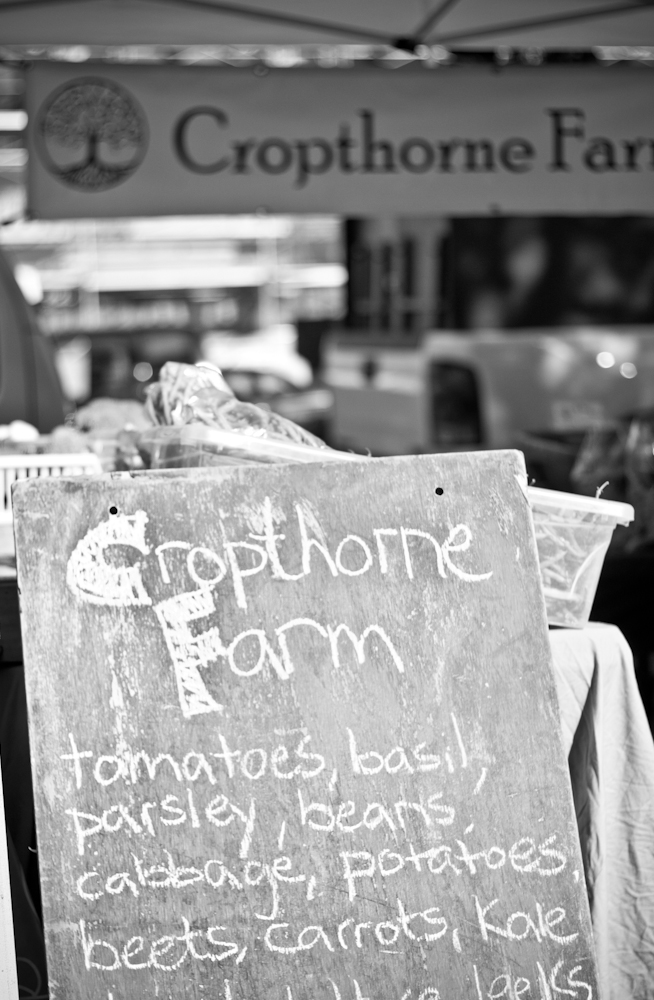 Cropthorne Far
Cropthorne
Farm
tomatoes, basil,
parsley, beans,
cabbage, potatoes,
beets, carrots, Kale
leeks